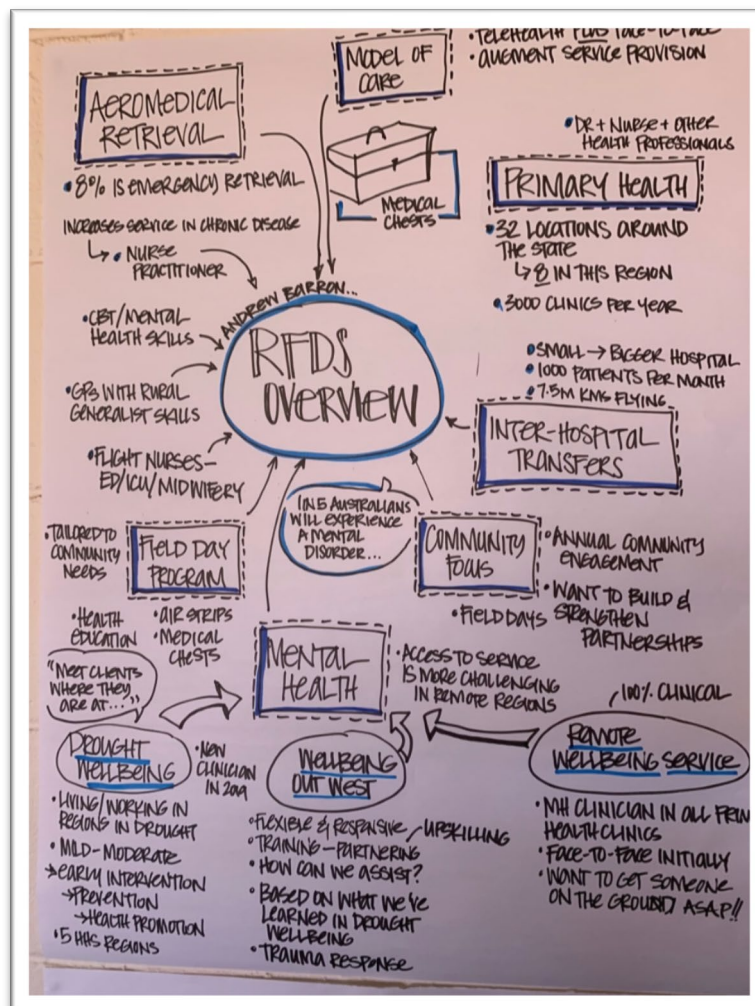 MODEL OF
CARE
• TELEHEALTH PLUS FACE-TO-FACE
• AUGMENT SERVICE PROVISION
AEROMEDICAL
RETRIEVAL
• 8% IS EMERGENCY RETRIEVAL
INCREASES SERVICE IN CHRONIC DISEASE
• NURSE
PRACTITIONER
• CBT/MENTAL
HEALTH SKILLS
• GPs WITH RURAL
GENERALIST SKILLS
• FLIGHT NURSES –
ED/ICU/MIDWIFERY
MEDICAL
CHESTS
• DR + NURSE + OTHER
HEALTH PROFESSIONALS
PRIMARY HEALTH
• 32 LOCATIONS AROUND
THE STATE
↳ 8 IN THIS REGION
• 3000 CLINICS PER YEAR
ANDREW BARRON...
RFDS
OVERVIEW
• SMALL → BIGGER HOSPITAL
• 1000 PATIENTS PER MONTH
• 7.5M KMS FLYING
INTER-HOSPITAL
TRANSFERS
1 IN 5 AUSTRALIANS
WILL EXPERIENCE
A MENTAL
DISORDER...
• TAILORED TO
COMMUNITY
NEEDS
FIELD DAY
PROGRAM
• HEALTH
EDUCATION
• AIR STRIPS
• MEDICAL
CHESTS
COMMUNITY
FOCUS
• FIELD DAYS
• ANNUAL COMMUNITY
ENGAGEMENT
• WANT TO BUILD &
STRENGTHEN
PARTNERSHIPS
MENTAL
HEALTH
• ACCESS TO SERVICE
IS MORE CHALLENGING
IN REMOTE REGIONS
"MEET CLIENTS
WHERE THEY
ARE AT..."
DROUGHT
WELLBEING
• NEW
CLINICIAN
IN 2019
• LIVING/WORKING IN
REGIONS IN DROUGHT
• MILD-MODERATE
→ EARLY INTERVENTION
→ PREVENTION
→ HEALTH PROMOTION
• 5 HHS REGIONS
WELLBEING
OUT WEST
• FLEXIBLE & RESPONSIVE / UPSKILLING
• TRAINING – PARTNERING
• HOW CAN WE ASSIST?
• BASED ON WHAT WE'VE
LEARNED IN DROUGHT
WELLBEING
• TRAUMA RESPONSE
100% CLINICAL
REMOTE
WELLBEING SERVICE
• MH CLINICIAN IN ALL PRIM
HEALTH CLINICS
• FACE-TO-FACE INITIALLY
• WANT TO GET SOMEONE
ON THE GROUND ASAP!!